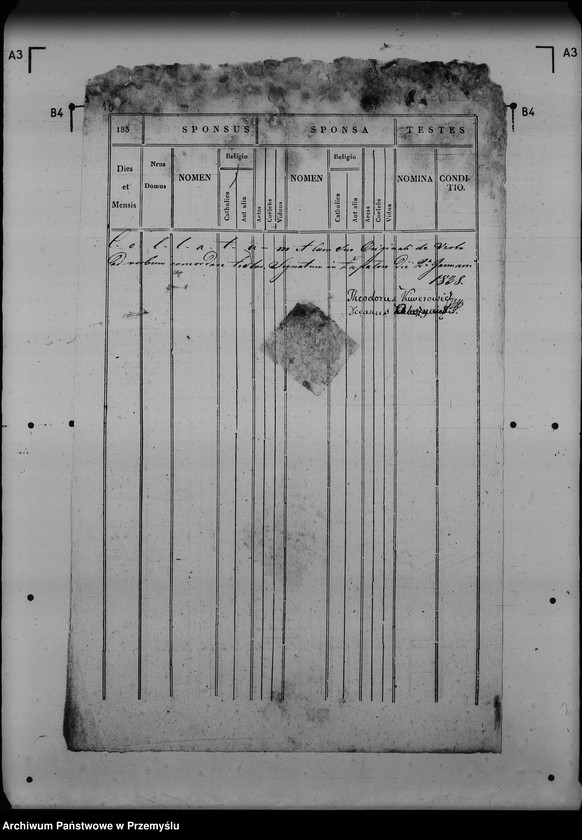 A3
A3
B4
B4
183
SPONSUS
SPONSA
TESTES
Dies et Mensis
Nrus Domus
NOMEN
Religio
Catholica
Aut alia
Aetas
Coelebs
Viduus
NOMEN
Religio
Catholica
Aut alia
Aetas
Coelebs
Vidua
NOMINA
CONDITIO.
Collatum cum Originali de Verbo
ad verbum concordare testor. Signatum in
1838.
Theodorus
Decanus
Archiwum Państwowe w Przemyślu